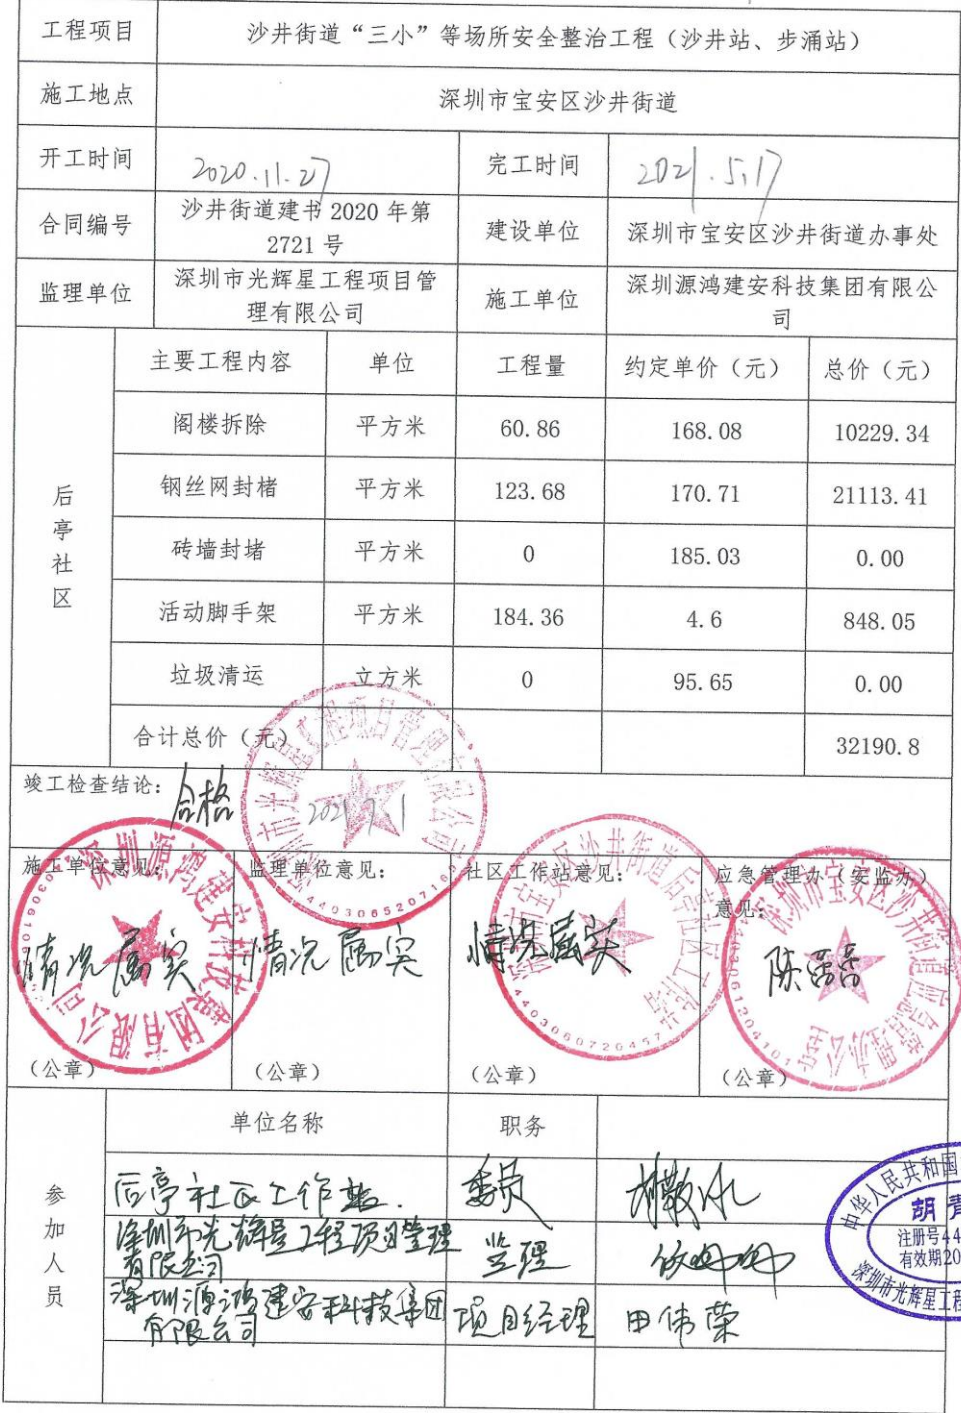 工程项目 沙井街道“三小”等场所安全整治工程（沙井站、步涌站）
施工地点 深圳市宝安区沙井街道
开工时间 2020.11.27 完工时间 2021.5.17
合同编号 沙井街道建书 2020 年第
2721 号
建设单位 深圳市宝安区沙井街道办事处
监理单位 深圳市光辉星工程项目管
理有限公司
施工单位 深圳源鸿建安科技集团有限公
司
后亭社区
主要工程内容 单位 工程量 约定单价（元） 总价（元）
阁楼拆除 平方米 60.86 168.08 10229.34
钢丝网封楮 平方米 123.68 170.71 21113.41
砖墙封堵 平方米 0 185.03 0.00
活动脚手架 平方米 184.36 4.6 848.05
垃圾清运 立方米 0 95.65 0.00
合计总价（元） 32190.8
竣工检查结论：合格
深圳市光辉星工程项目管理有限公司
施工单位意见： 监理单位意见： 社区工作站意见： 应急管理办（安监办）
意见：
情况属实 情况属实 情况属实 陈
深圳源鸿建安科技集团有限公司
深圳市宝安区沙井街道后亭社区工作站
深圳市宝安区沙井街道应急管理办公室
（公章） （公章） （公章） （公章）
参加人员
单位名称 职务
后亭社区工作站. 委员
深圳市光辉星工程项目管理
有限公司
监理
深圳源鸿建安科技集团
有限公司
项目经理 田伟荣
中华人民共和国
胡青
注册号44
有效期20
深圳市光辉星工程